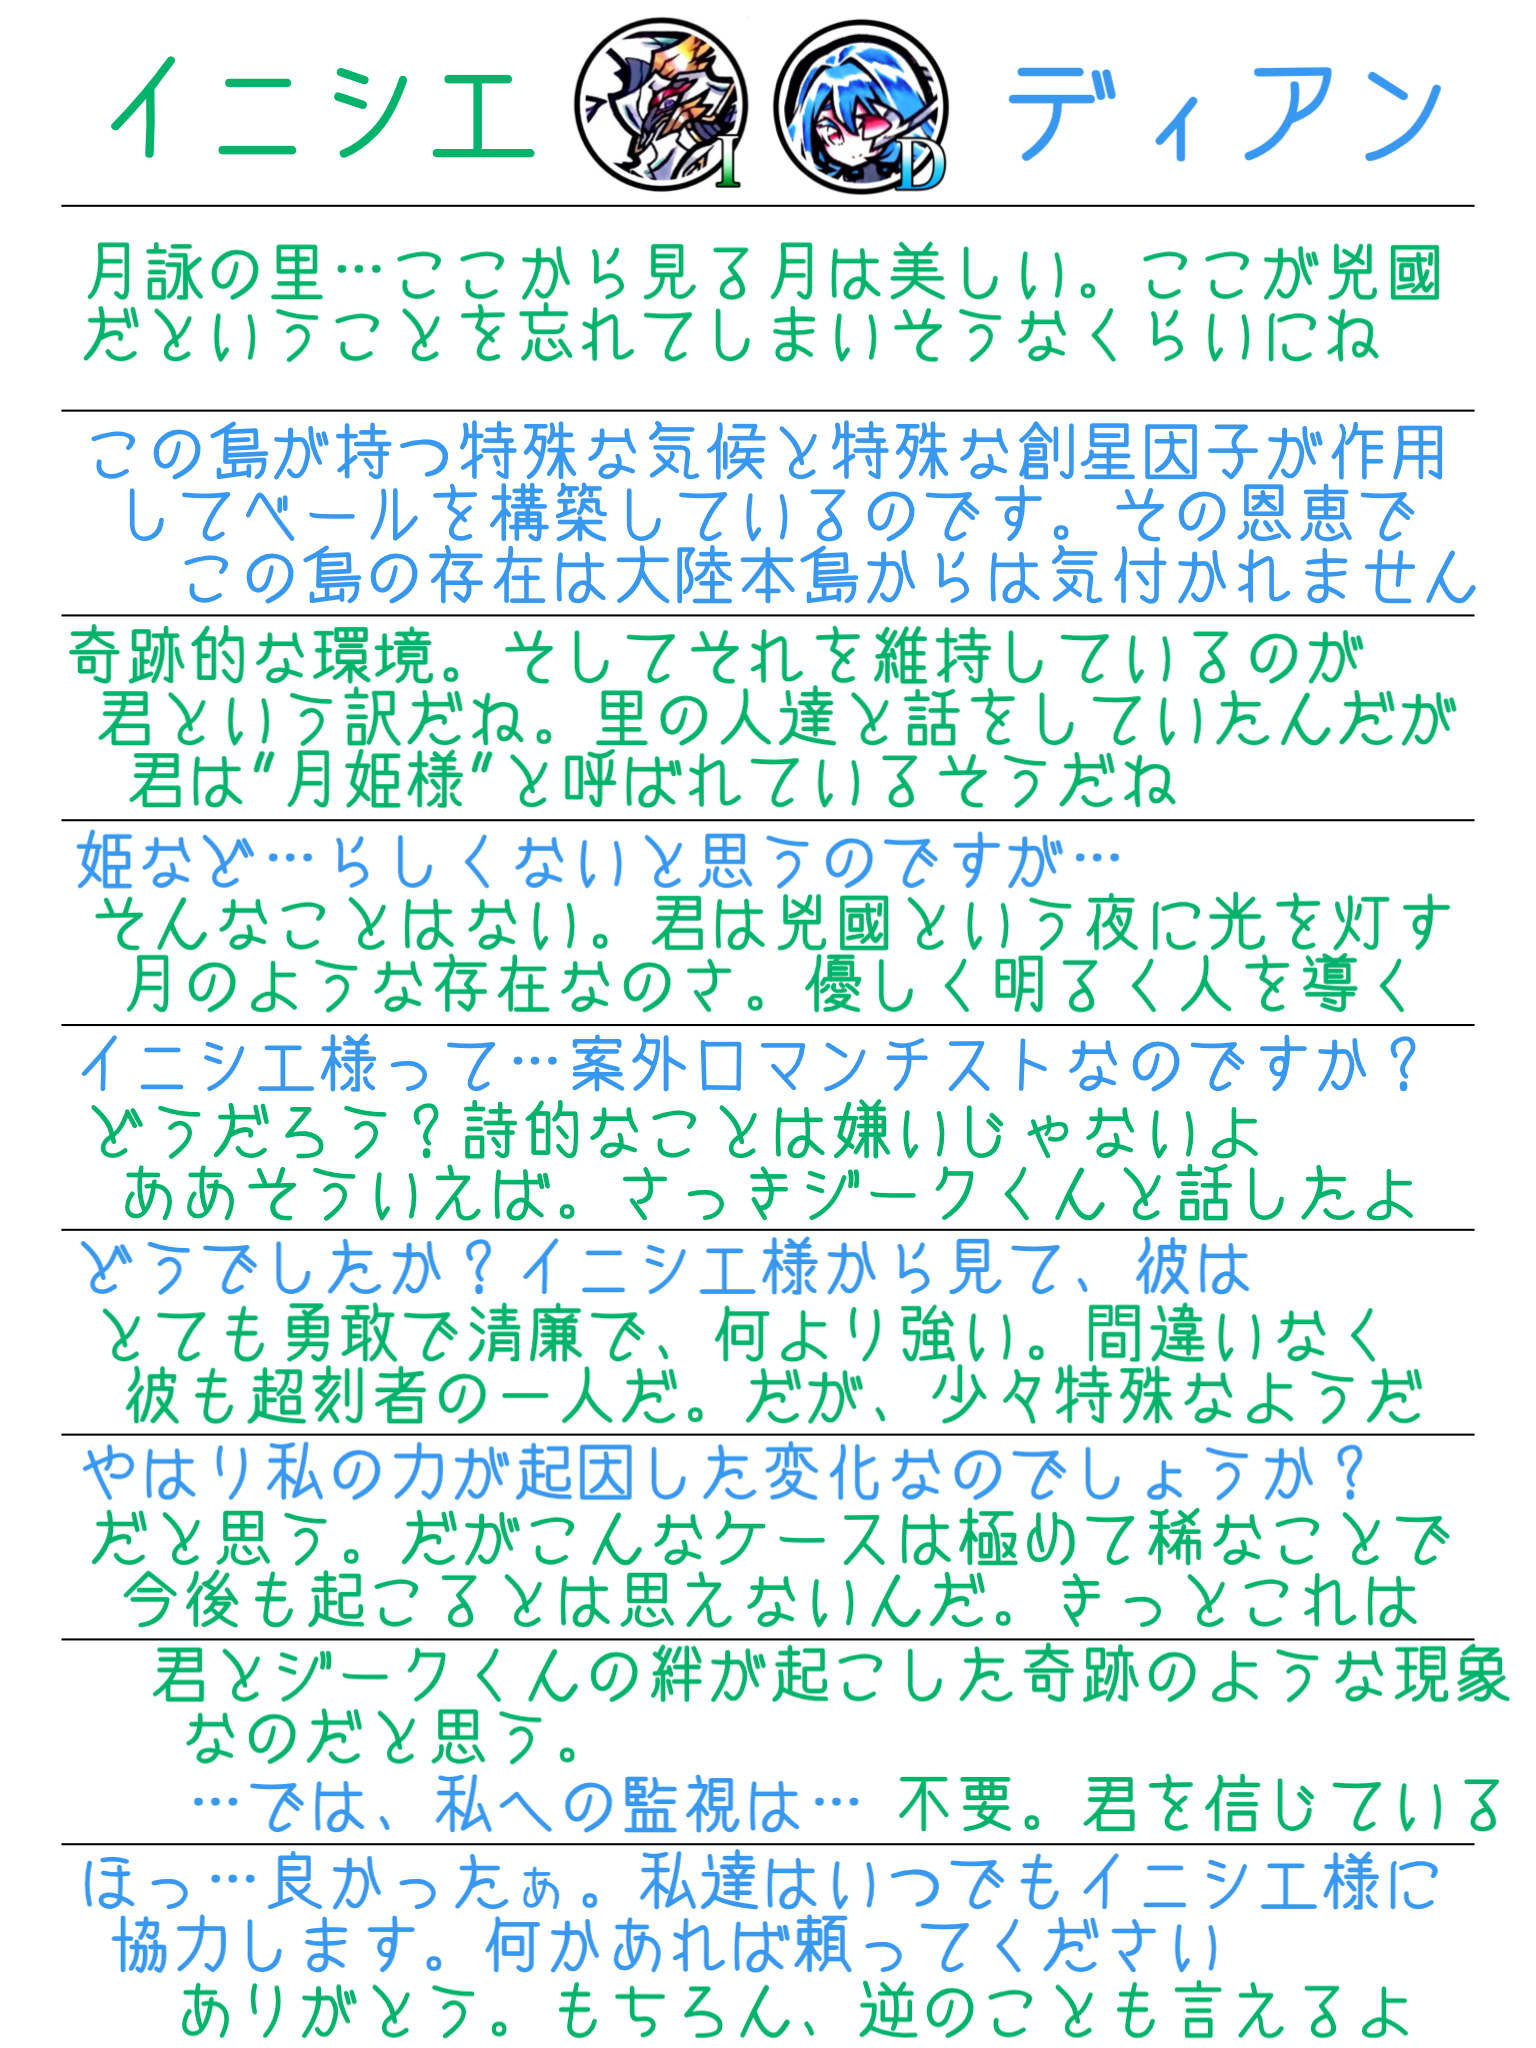 イニシエ I D ディアン
月詠の里…ここから見る月は美しい。ここが兇國
だということを忘れてしまいそうなくらいにね
この島が持つ特殊な気候と特殊な創星因子が作用
してベールを構築しているのです。その恩恵で
この島の存在は大陸本島からは気付かれません
奇跡的な環境。そしてそれを維持しているのが
君という訳だね。里の人達と話をしていたんだが
君は"月姫様"と呼ばれているそうだね
姫など…らしくないと思うのですが…
そんなことはない。君は兇國という夜に光を灯す
月のような存在なのさ。優しく明るく人を導く
イニシエ様って…案外ロマンチストなのですか？
どうだろう？詩的なことは嫌いじゃないよ
ああそういえば。さっきジークくんと話したよ
どうでしたか？イニシエ様から見て、彼は
とても勇敢で清廉で、何より強い。間違いなく
彼も超刻者の一人だ。だが、少々特殊なようだ
やはり私の力が起因した変化なのでしょうか？
だと思う。だがこんなケースは極めて稀なことで
今後も起こるとは思えないんだ。きっとこれは
君とジークくんの絆が起こした奇跡のような現象
なのだと思う。
…では、私への監視は… 不要。君を信じている
ほっ…良かったぁ。私達はいつでもイニシエ様に
協力します。何かあれば頼ってください
ありがとう。もちろん、逆のことも言えるよ